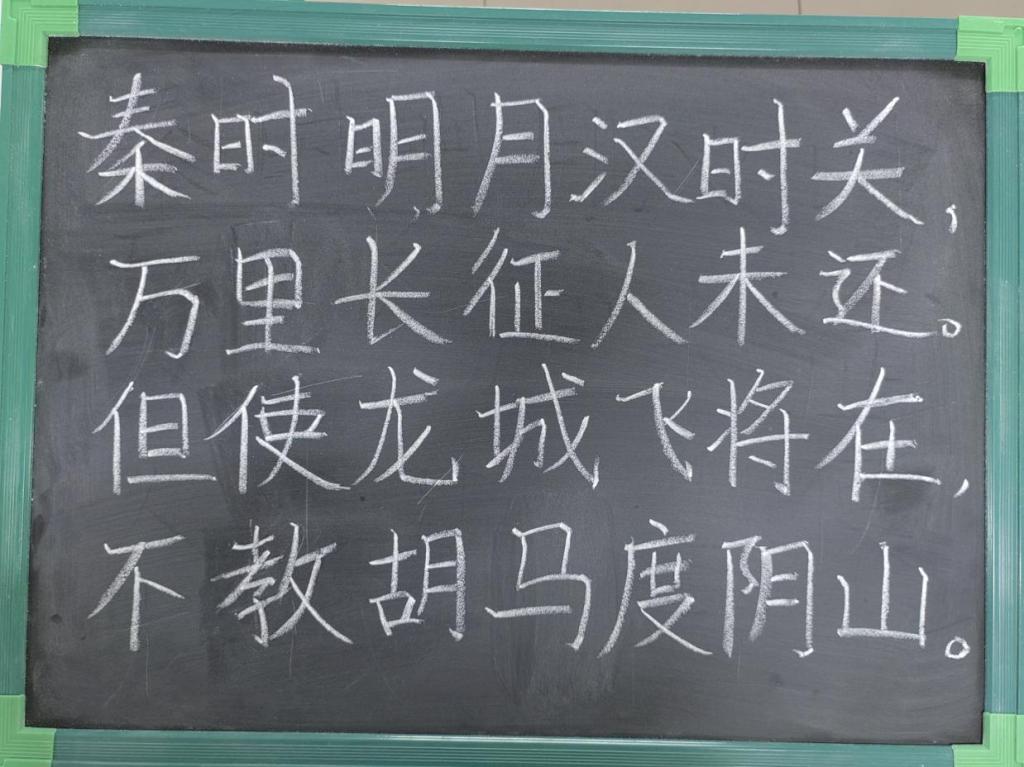 秦时明月汉时关，
万里长征人未还。
但使龙城飞将在，
不教胡马度阴山。